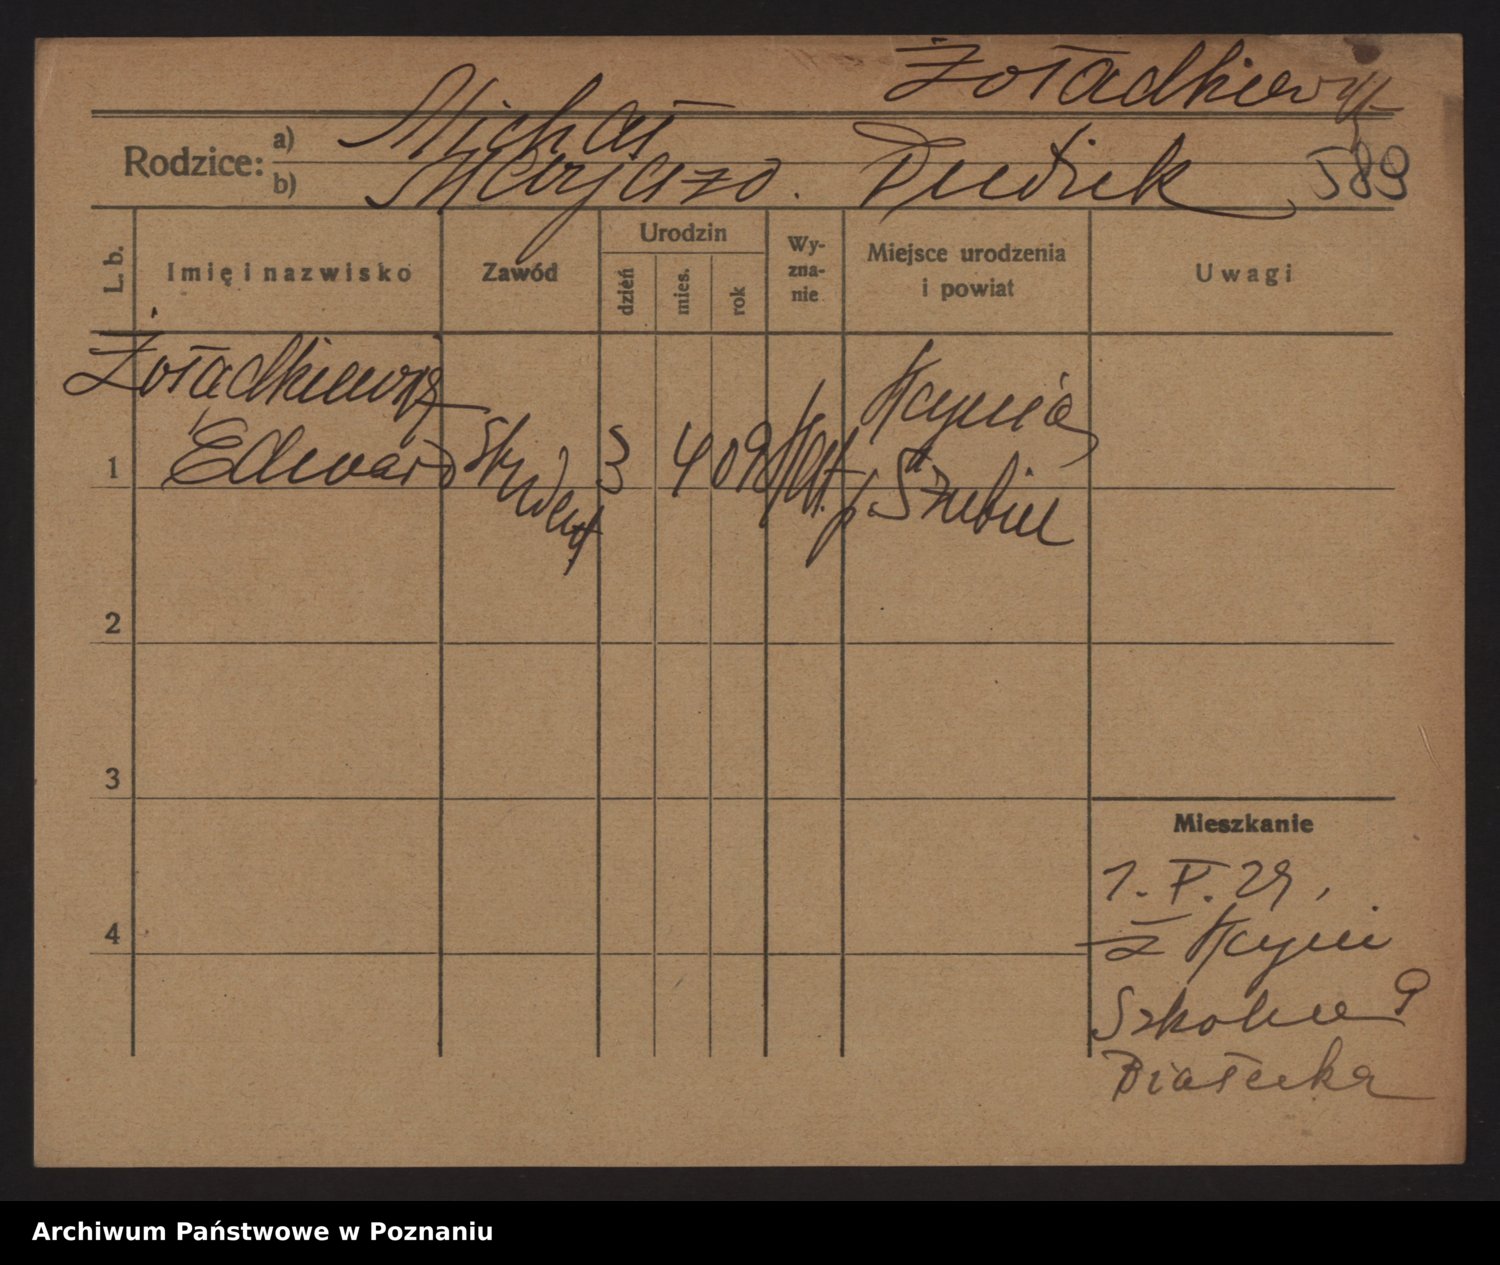 Żoładkiewicz
Rodzice: a) Michał
b) Marjanna. Dudziak 589
L. b. Imię i nazwisko Zawód Urodzin dzień mies. rok Wyznanie Miejsce urodzenia i powiat Uwagi
Żoładkiewicz Kcynia
1 Edward Student 3 4 09 kat. p. Szubin
2
3
Mieszkanie
1. V. 29,
4
z Kcyni
Szkolna 9
Białecka
Archiwum Państwowe w Poznaniu